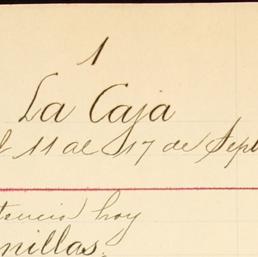 1
La Caja
11 al 17 de Sept
tencia hoy
nillas.